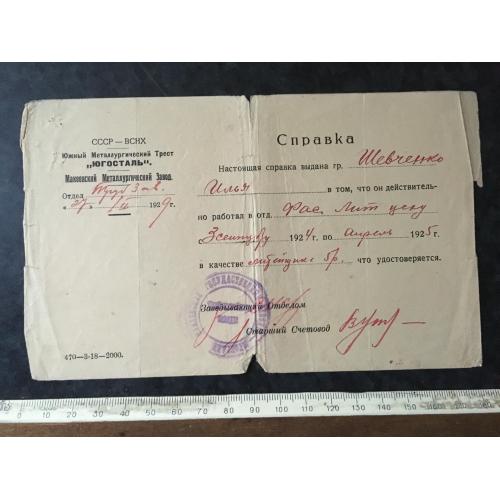 СССР — ВСНХ
Южный Металлургический Трест
„ЮГОСТАЛЬ".
Макеевский Металлургический Завод.
Отдел Труб Зав.
„27" 1929 г.
470—3-18—2000.
Справка
Настоящая справка выдана гр. Шевченко
Илья в том, что он действитель-
но работал в отд. Фас. Лит цеху
1924 г. по Апрель 1925 г.
в качестве бр. что удостоверяется.
Заведывающий Отделом
Старший Счетовод
0 10 20 30 40 50 60 70 80 90 100 110 120 130 140 150 160